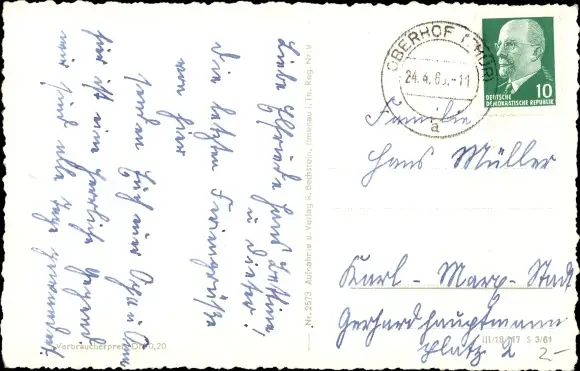 Liebe Elfriede, Hans, Bettina,
u. Dieter!
Die letzten Feriengrüße
von hier
senden Euch
hier ist eine herrliche Gegend
wir sind alle Tage gewandert.
Verbraucherpreis DM 0,20
Nr. 2573 Aufnahme u. Verlag R. Bechstein, Ilmenau i. Th. Reg. Nr. 9
OBERHOF (THÜR)
24.4.6 -11
a
10
DEUTSCHE
DEMOKRATISCHE REPUBLIK
Familie
Hans Müller
Karl-Marx-Stadt
Gerhardhauptmann
platz 2
III/18/117 S 3/61
2-